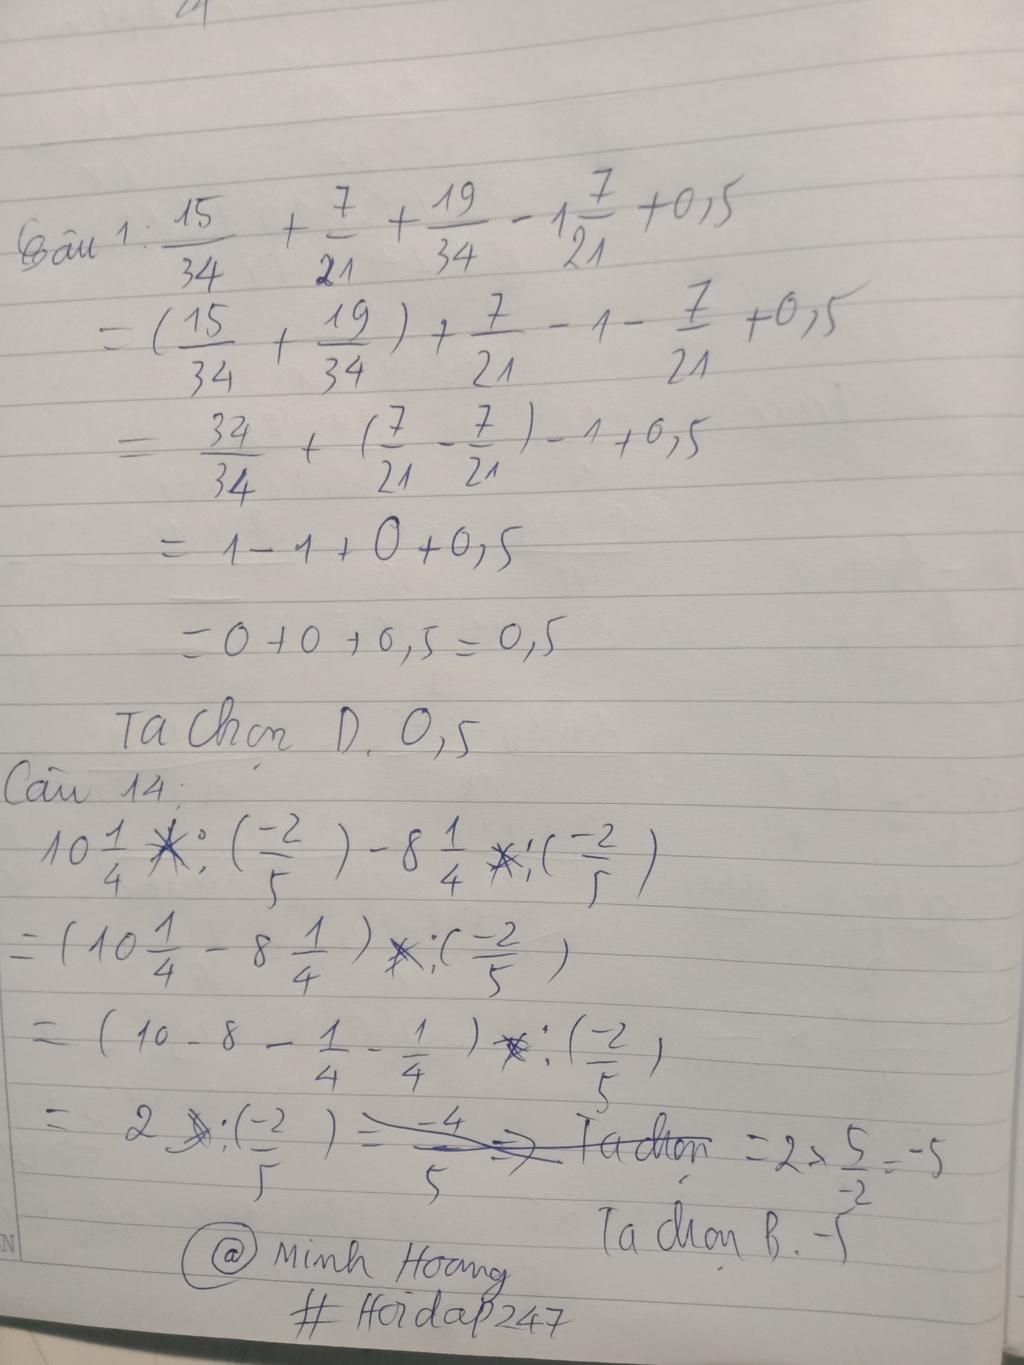 Câu 1: 15/34 + 7/21 + 19/34 - 1 7/21 + 0,5
= (15/34 + 19/34) + 7/21 - 1 - 7/21 + 0,5
= 34/34 + (7/21 - 7/21) - 1 + 0,5
= 1 - 1 + 0 + 0,5
= 0 + 0 + 0,5 = 0,5
Ta chọn D. 0,5
Câu 14:
10 1/4 : (-2/5) - 8 1/4 : (-2/5)
= (10 1/4 - 8 1/4) : (-2/5)
= (10 - 8 - 1/4 - 1/4) : (-2/5)
= 2 : (-2/5) = -4/5 => Ta chọn = 2 x 5/-2 = -5
Ta chọn B. -5
@ Minh Hoang
# Hoidap247